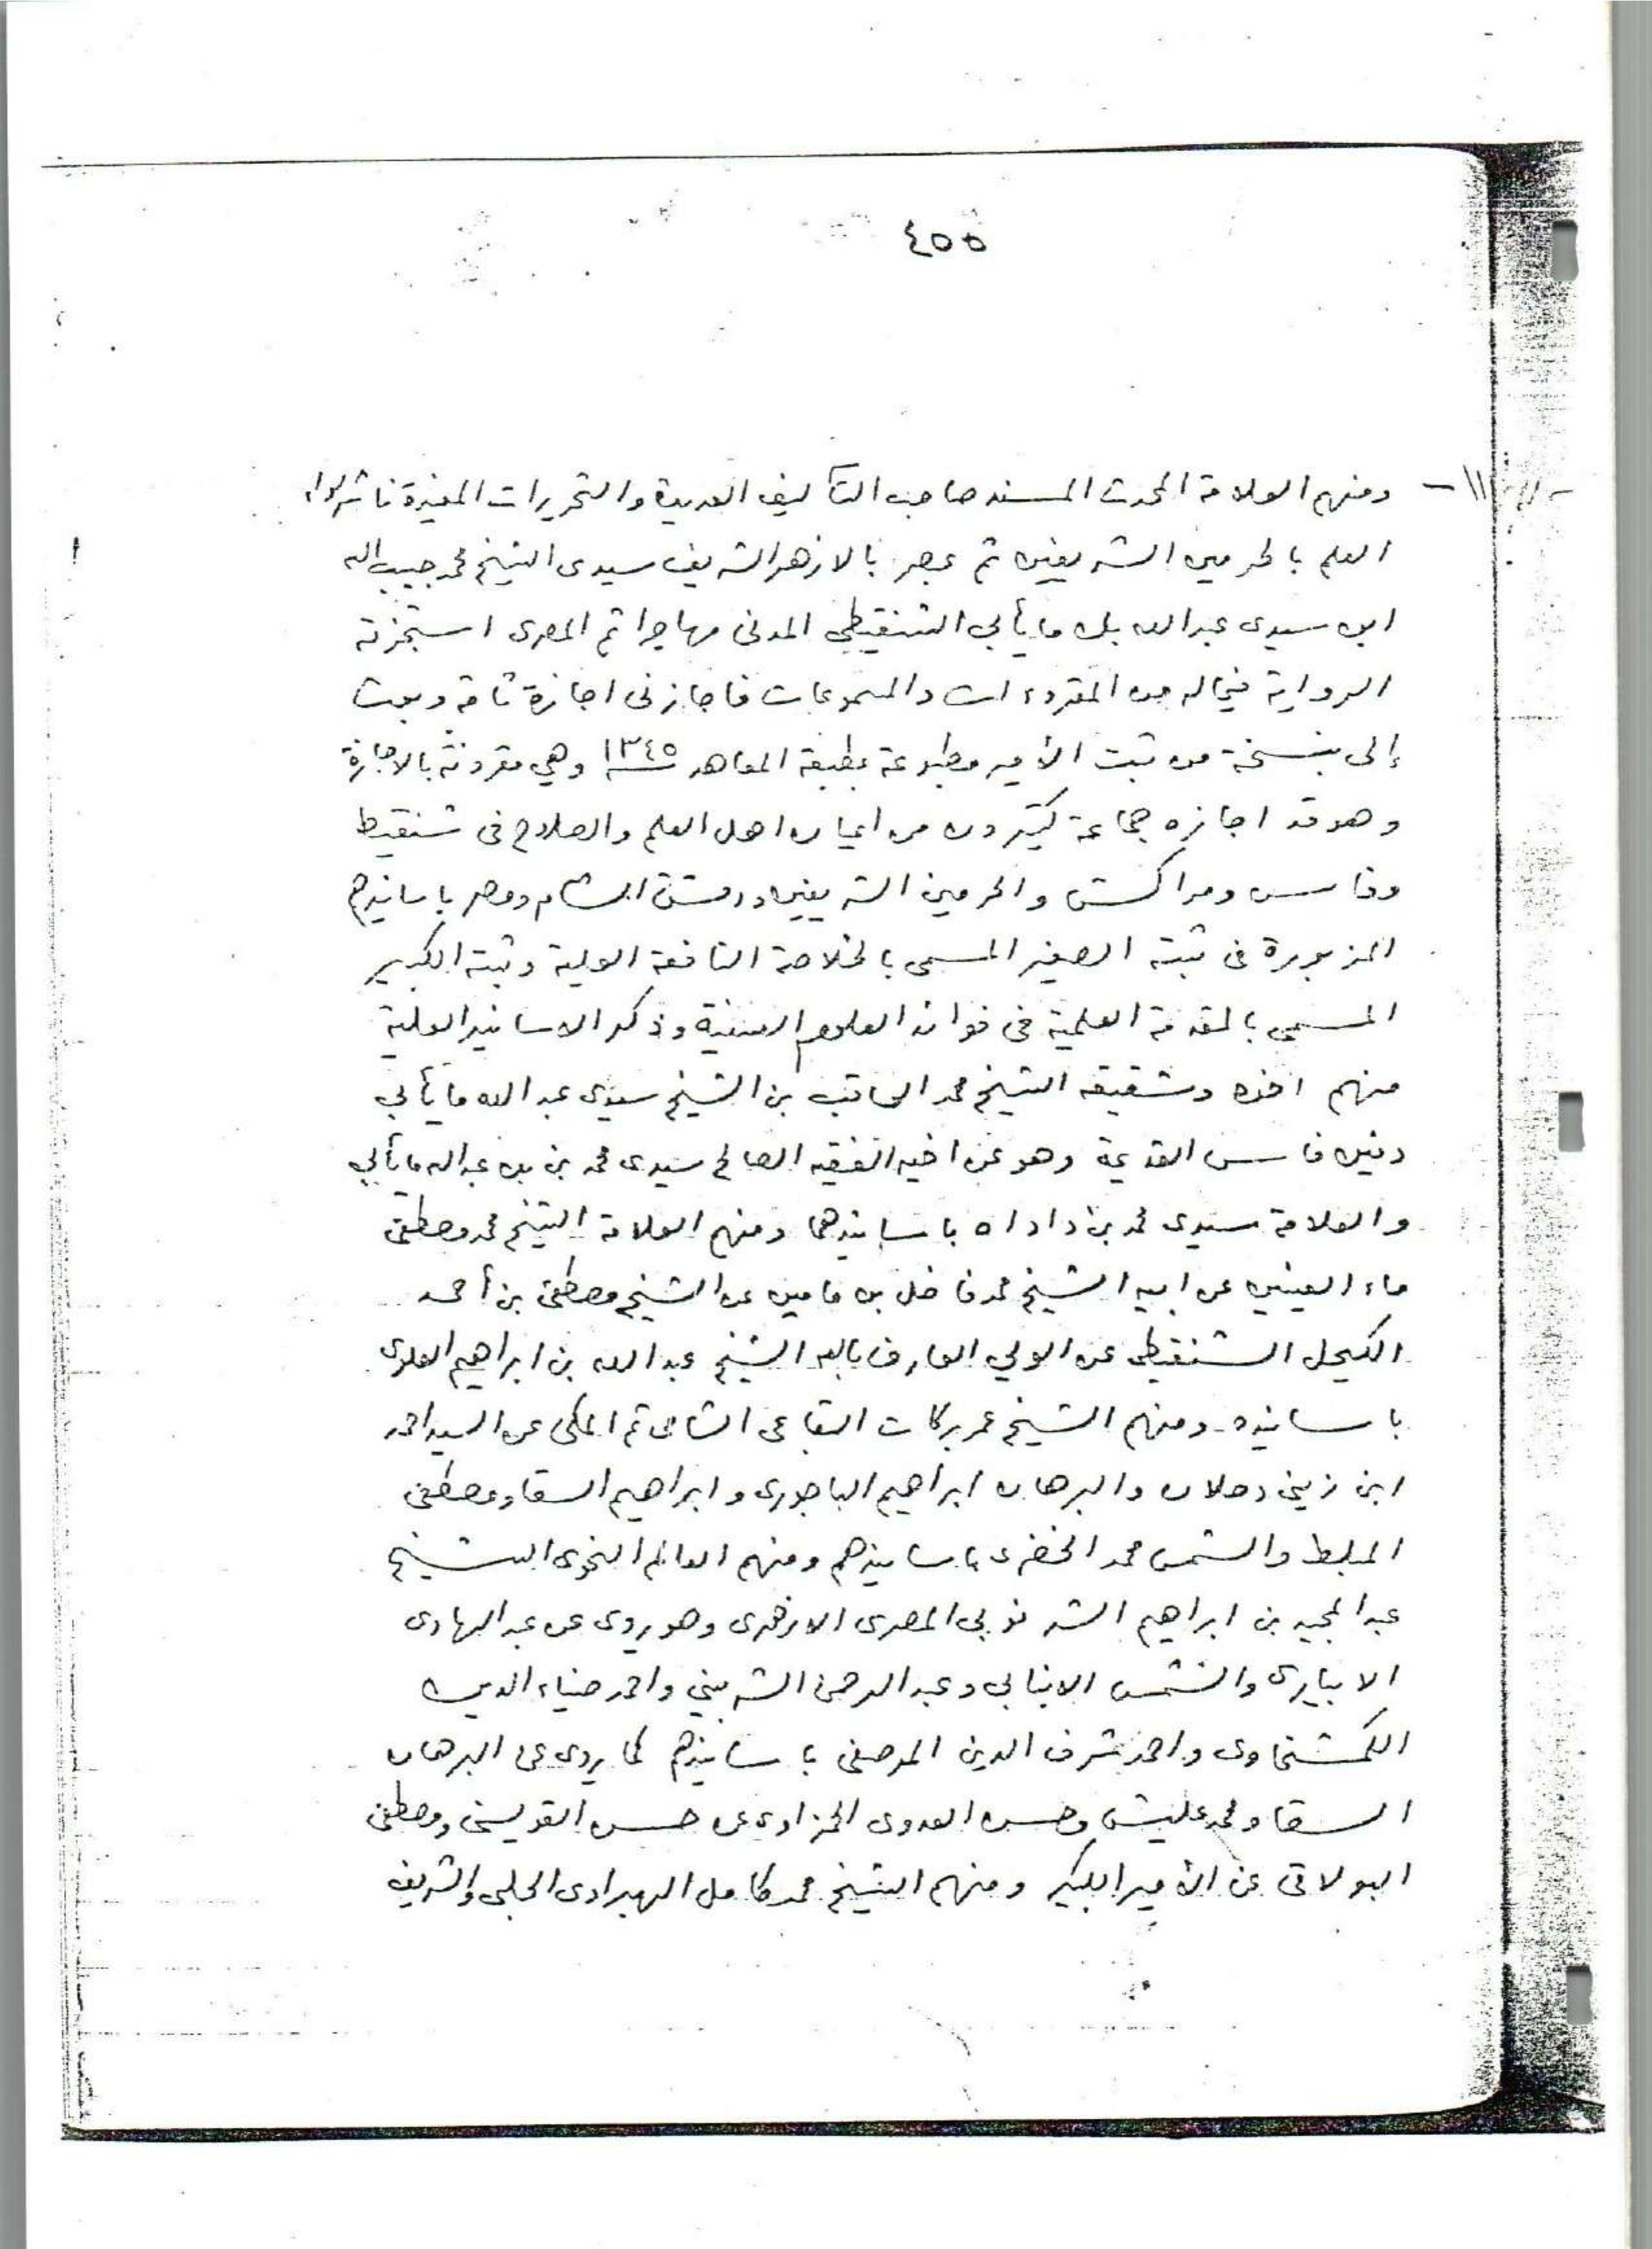 ٤٥٥
١١- ومنهم العلامة المحدث المسند صاحب التآليف العديدة والتحريرات المفيدة ناشر لواء
العلم بالحرمين الشريفين ثم بمصر بالازهر الشريف سيدى الشيخ محمد حبيب الله
ابن سيدى عبد الله بن مايأبي الشنقيطي المدنى مهاجرا ثم المصرى استجزته
الرواية فيما له من المقروءات والمسموعات فاجازنى اجازة تامة وبعث
إلى بنسخة من ثبت الأمير مطبوعة بمطبعة المعاهد سنة ١٣٤٥ وهي مقرونة بالاجازة
وهو قد اجازه جماعة كثيرون من اعيان اهل العلم والصلاح فى شنقيط
وفاس ومراكش والحرمين الشريفين ودمشق الشام ومصر باسانيدهم
المزبورة فى ثبته الصغير المسمى بالخلاصة النافعة العلية وثبته الكبير
المسمى بالمقدمة العلمية فى فوائد العلوم السنية وذكر الاسانيد العلية
منهم اخوه وشقيقه الشيخ محمد العاقب بن الشيخ سيدى عبد الله مايأبي
دفين فاس القديمة وهو عن اخيه الفقيه الصالح سيدى محمد بن بن عبد الله مايأبي
والعلامة سيدى محمد بن داداه باسانيدهما ومنهم العلامة الشيخ محمد مصطفى
ماء العينين عن ابيه الشيخ محمد فاضل بن مامين عن الشيخ مصطفى بن أحمد
الكيحل الشنقيطى عن الولي العارف بالله الشيخ عبد الله بن ابراهيم العلوى
باسانيده ومنهم الشيخ عمر بركات البقاعى الشامى ثم المكى عن السيد احمد
ابن زينى دحلان والبرهان ابراهيم الباجورى وابراهيم السقا ومصطفى
المبلط والشمس محمد الخضرى باسانيدهم ومنهم العالم النحوى الشيخ
عبد المجيد بن ابراهيم الشرنوبي المصرى الازهرى وهو روى عن عبد الهادى
الابيارى والشمس الانبابي وعبد الرحمن الشربيني واحمد ضياء الدين
الكمشخاوى واحمد شرف الدين المرصفى باسانيدهم كما يروى عن البرهان
السقا ومحمد عليش وحسن العدوى الحمزاوى عن حسن القويسنى ومصطفى
البولاقى عن الأمير الكبير ومنهم الشيخ محمد كامل الهبراوى الحلبى والشريف